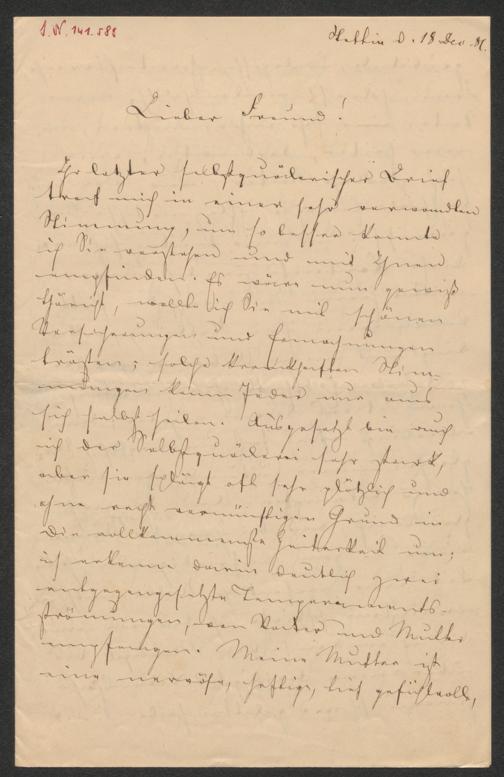 J. N. 141.588
Stettin d. 18 Dec.
Lieber Freund!
Ihr letzter selbstquälerischer Brief
traf mich in einer sehr verwandten
Stimmung, um so besser konnte
ich Sie verstehen und mit Ihnen
empfinden. Es wäre nun gewiß
thöricht, wollte ich Sie mit schönen
Versicherungen und Ermahnungen
trösten; solche krankhaften Stim-
mungen kann Jeder nur aus
sich selbst heilen. Ausgesetzt bin auch
ich der Selbstquälerei sehr stark,
aber sie schlägt oft sehr plötzlich und
ohne recht vernünftigen Grund in
die vollkommenste Heiterkeit um;
ich erkenne darin deutlich zwei
entgegengesetzte Temperaments-
strömungen, von Vater und Mutter
empfangen. Meine Mutter ist
eine nervöse, heftige, tief gefühlvolle,